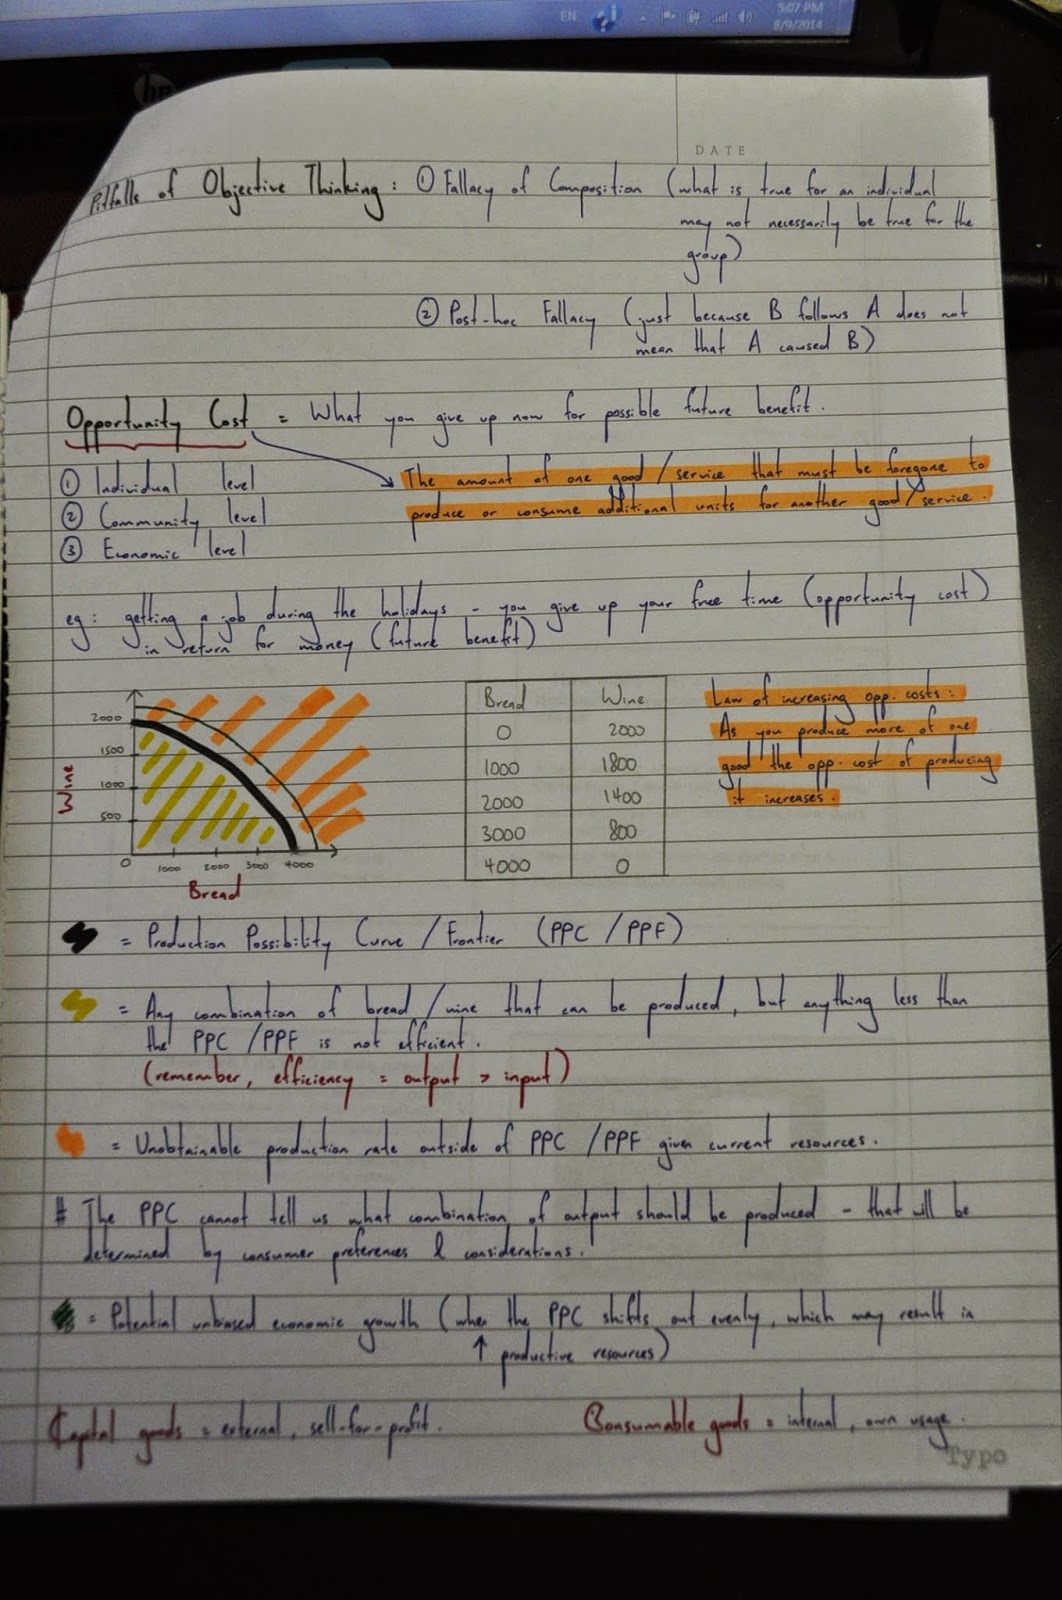 EN
5:07 PM
8/9/2014
hp
DATE
Pitfalls of Objective Thinking: ① Fallacy of Composition (what is true for an individual
may not necessarily be true for the
group)
② Post-hoc Fallacy (just because B follows A does not
mean that A caused B)
Opportunity Cost = What you give up now for possible future benefit.
① Individual level
② Community level
③ Economic level
The amount of one good/service that must be foregone to
produce or consume additional units for another good/service.
eg: getting a job during the holidays - you give up your free time (opportunity cost)
in return for money (future benefit)
2000
1500
1000
500
0
1000 2000 3000 4000
Wine
Bread
Bread Wine
0 2000
1000 1800
2000 1400
3000 800
4000 0
Law of increasing opp. costs:
As you produce more of one
good the opp. cost of producing
it increases.
= Production Possibility Curve / Frontier (PPC / PPF)
= Any combination of bread/wine that can be produced, but anything less than
the PPC / PPF is not efficient.
(remember, efficiency = output > input)
= Unobtainable production rate outside of PPC / PPF given current resources.
# The PPC cannot tell us what combination of output should be produced - that will be
determined by consumer preferences & considerations.
= Potential unbiased economic growth (when the PPC shifts out evenly, which may result in
↑ productive resources)
Capital goods = external, sell-for-profit.
Consumable goods = internal, own usage.
Typo